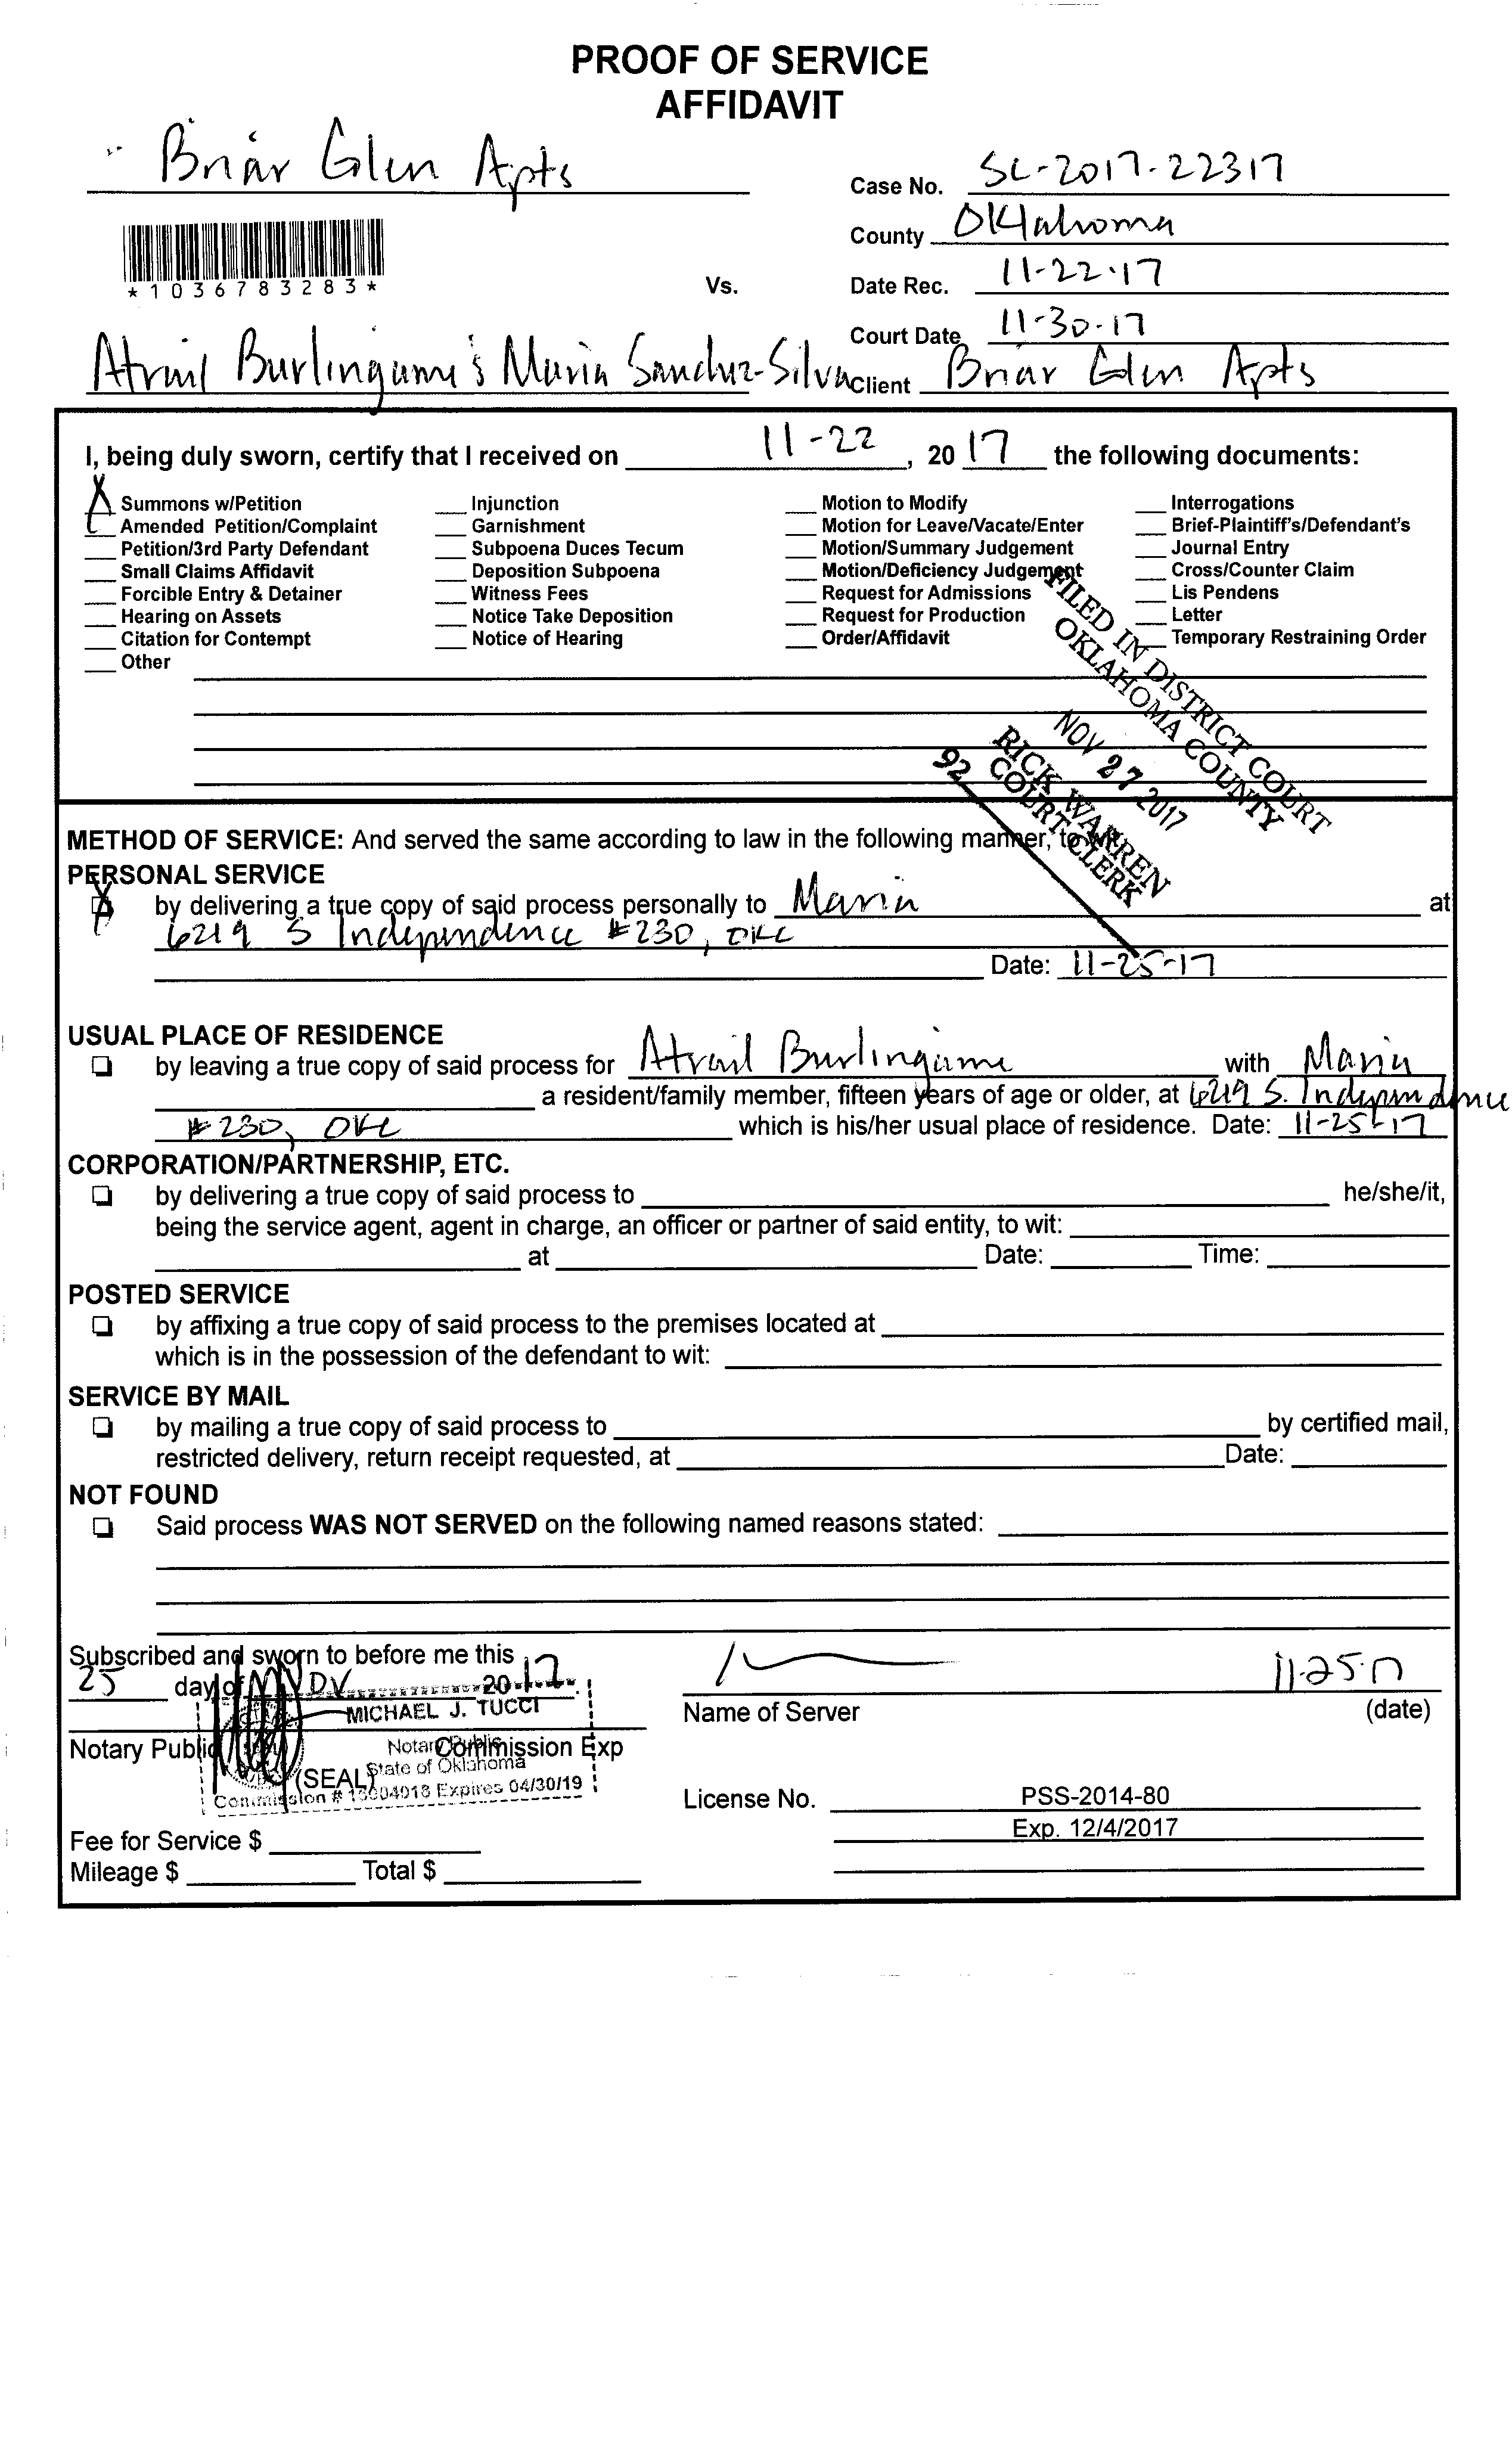 PROOF OF SERVICE
AFFIDAVIT
Briar Glen Apts
Case No. SC-2017-22317
County Oklahoma
*1036783283*
Vs.
Date Rec. 11-22-17
Court Date 11-30-17
Atrail Burlingame & Maria Sanchez-Silva
Client Briar Glen Apts
I, being duly sworn, certify that I received on 11-22, 20 17 the following documents:
X Summons w/Petition
Amended Petition/Complaint
Petition/3rd Party Defendant
Small Claims Affidavit
Forcible Entry & Detainer
Hearing on Assets
Citation for Contempt
Other
Injunction
Garnishment
Subpoena Duces Tecum
Deposition Subpoena
Witness Fees
Notice Take Deposition
Notice of Hearing
Motion to Modify
Motion for Leave/Vacate/Enter
Motion/Summary Judgement
Motion/Deficiency Judgement
Request for Admissions
Request for Production
Order/Affidavit
Interrogations
Brief-Plaintiff's/Defendant's
Journal Entry
Cross/Counter Claim
Lis Pendens
Letter
Temporary Restraining Order
FILED IN DISTRICT COURT
OKLAHOMA COUNTY
NOV 27 2017
RICK WARREN
COURT CLERK
92
METHOD OF SERVICE: And served the same according to law in the following manner, to wit:
PERSONAL SERVICE
X by delivering a true copy of said process personally to Maria at
6219 S Independence #230, OKC
Date: 11-25-17
USUAL PLACE OF RESIDENCE
by leaving a true copy of said process for Atrail Burlingame with Maria
a resident/family member, fifteen years of age or older, at 6219 S. Independence
#230, OKC which is his/her usual place of residence. Date: 11-25-17
CORPORATION/PARTNERSHIP, ETC.
by delivering a true copy of said process to he/she/it,
being the service agent, agent in charge, an officer or partner of said entity, to wit:
at Date: Time:
POSTED SERVICE
by affixing a true copy of said process to the premises located at
which is in the possession of the defendant to wit:
SERVICE BY MAIL
by mailing a true copy of said process to by certified mail,
restricted delivery, return receipt requested, at Date:
NOT FOUND
Said process WAS NOT SERVED on the following named reasons stated:
Subscribed and sworn to before me this
25 day of NOV 2017
11-25-17
MICHAEL J. TUCCI
Name of Server (date)
Notary Public Commission Exp
Notary Public
State of Oklahoma
(SEAL)
Commission # Expires 04/30/19
License No. PSS-2014-80
Exp. 12/4/2017
Fee for Service $
Mileage $ Total $